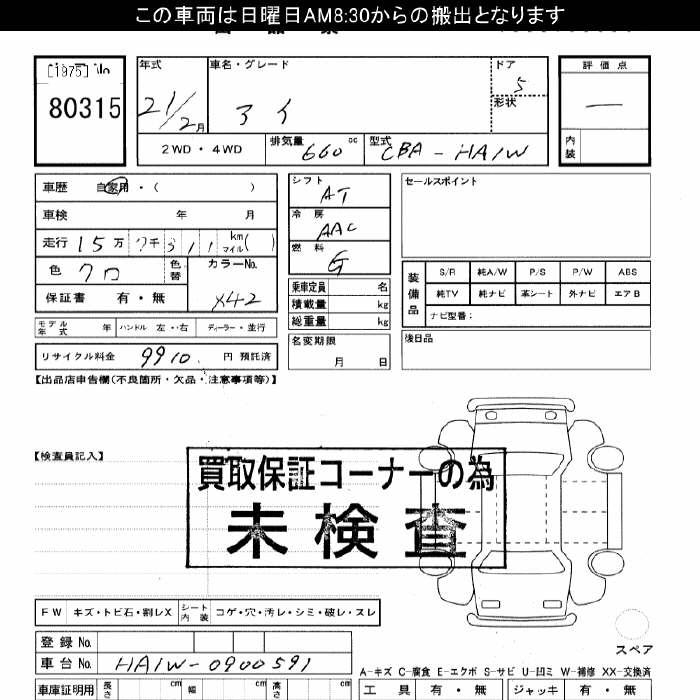 この車両は日曜日AM8:30からの搬出となります
[1975] No
80315
年式
21/2月
車名・グレード
アイ
ドア
5
形状
評価点
―
内装
2WD・4WD
排気量
660cc
型式
CBA-HA1W
車歴 自家用・( )
車検 年 月
走行 15万7千311 km マイル( )
色 クロ
色替
カラーNo.
X42
保証書 有・無
モデル年式 年 ハンドル 左・右 ディーラー・並行
リサイクル料金 9910 円 預託済
シフト
AT
冷房
AAC
燃料
G
乗車定員 名
積載量 kg
総重量 kg
名変期限
月 日
セールスポイント
装備品
S/R 純A/W P/S P/W ABS
純TV 純ナビ 革シート 外ナビ エアB
ナビ型番:
後日品
【出品店申告欄(不良箇所・欠品・注意事項等)】
【検査員記入】
買取保証コーナーの為
未検査
FW キズ・トビ石・割レX シート内装 コゲ・穴・汚レ・シミ・破レ・スレ
スペア
登録No.
車台No. HA1W-0900591
A-キズ C-腐食 E-エクボ S-サビ U-凹ミ W-補修 XX-交換済
車庫証明用 長さ cm 幅 cm 高さ cm
工具 有・無 ジャッキ 有・無